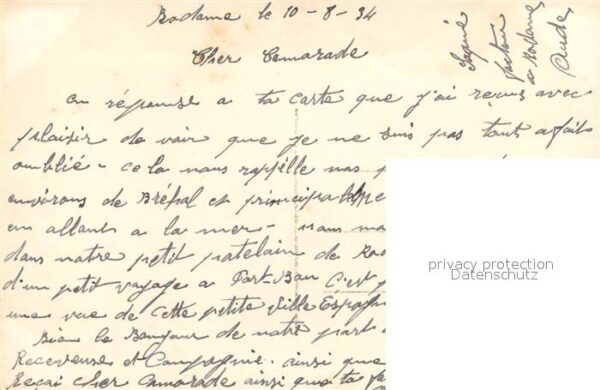 Rodome le 10-8-34
Sapié
facteur
a Rodome
Aude
Cher Camarade
en réponse a ta carte que j'ai reçus avec
plaisir de voir que je ne suis pas tout a fait
oublié - cela nous rappelle nos
environs de Bréhal et principal
en allant a la mer - nous
dans notre petit patelain de Ro
d'un petit voyage a Port-Bou C'est
une vue de cette petite ville Espagn
Bien le Bonjour de notre part
Receveuse et Compagnie. ainsi que
Reçoi cher Camarade ainsi que ta
privacy protection
Datenschutz